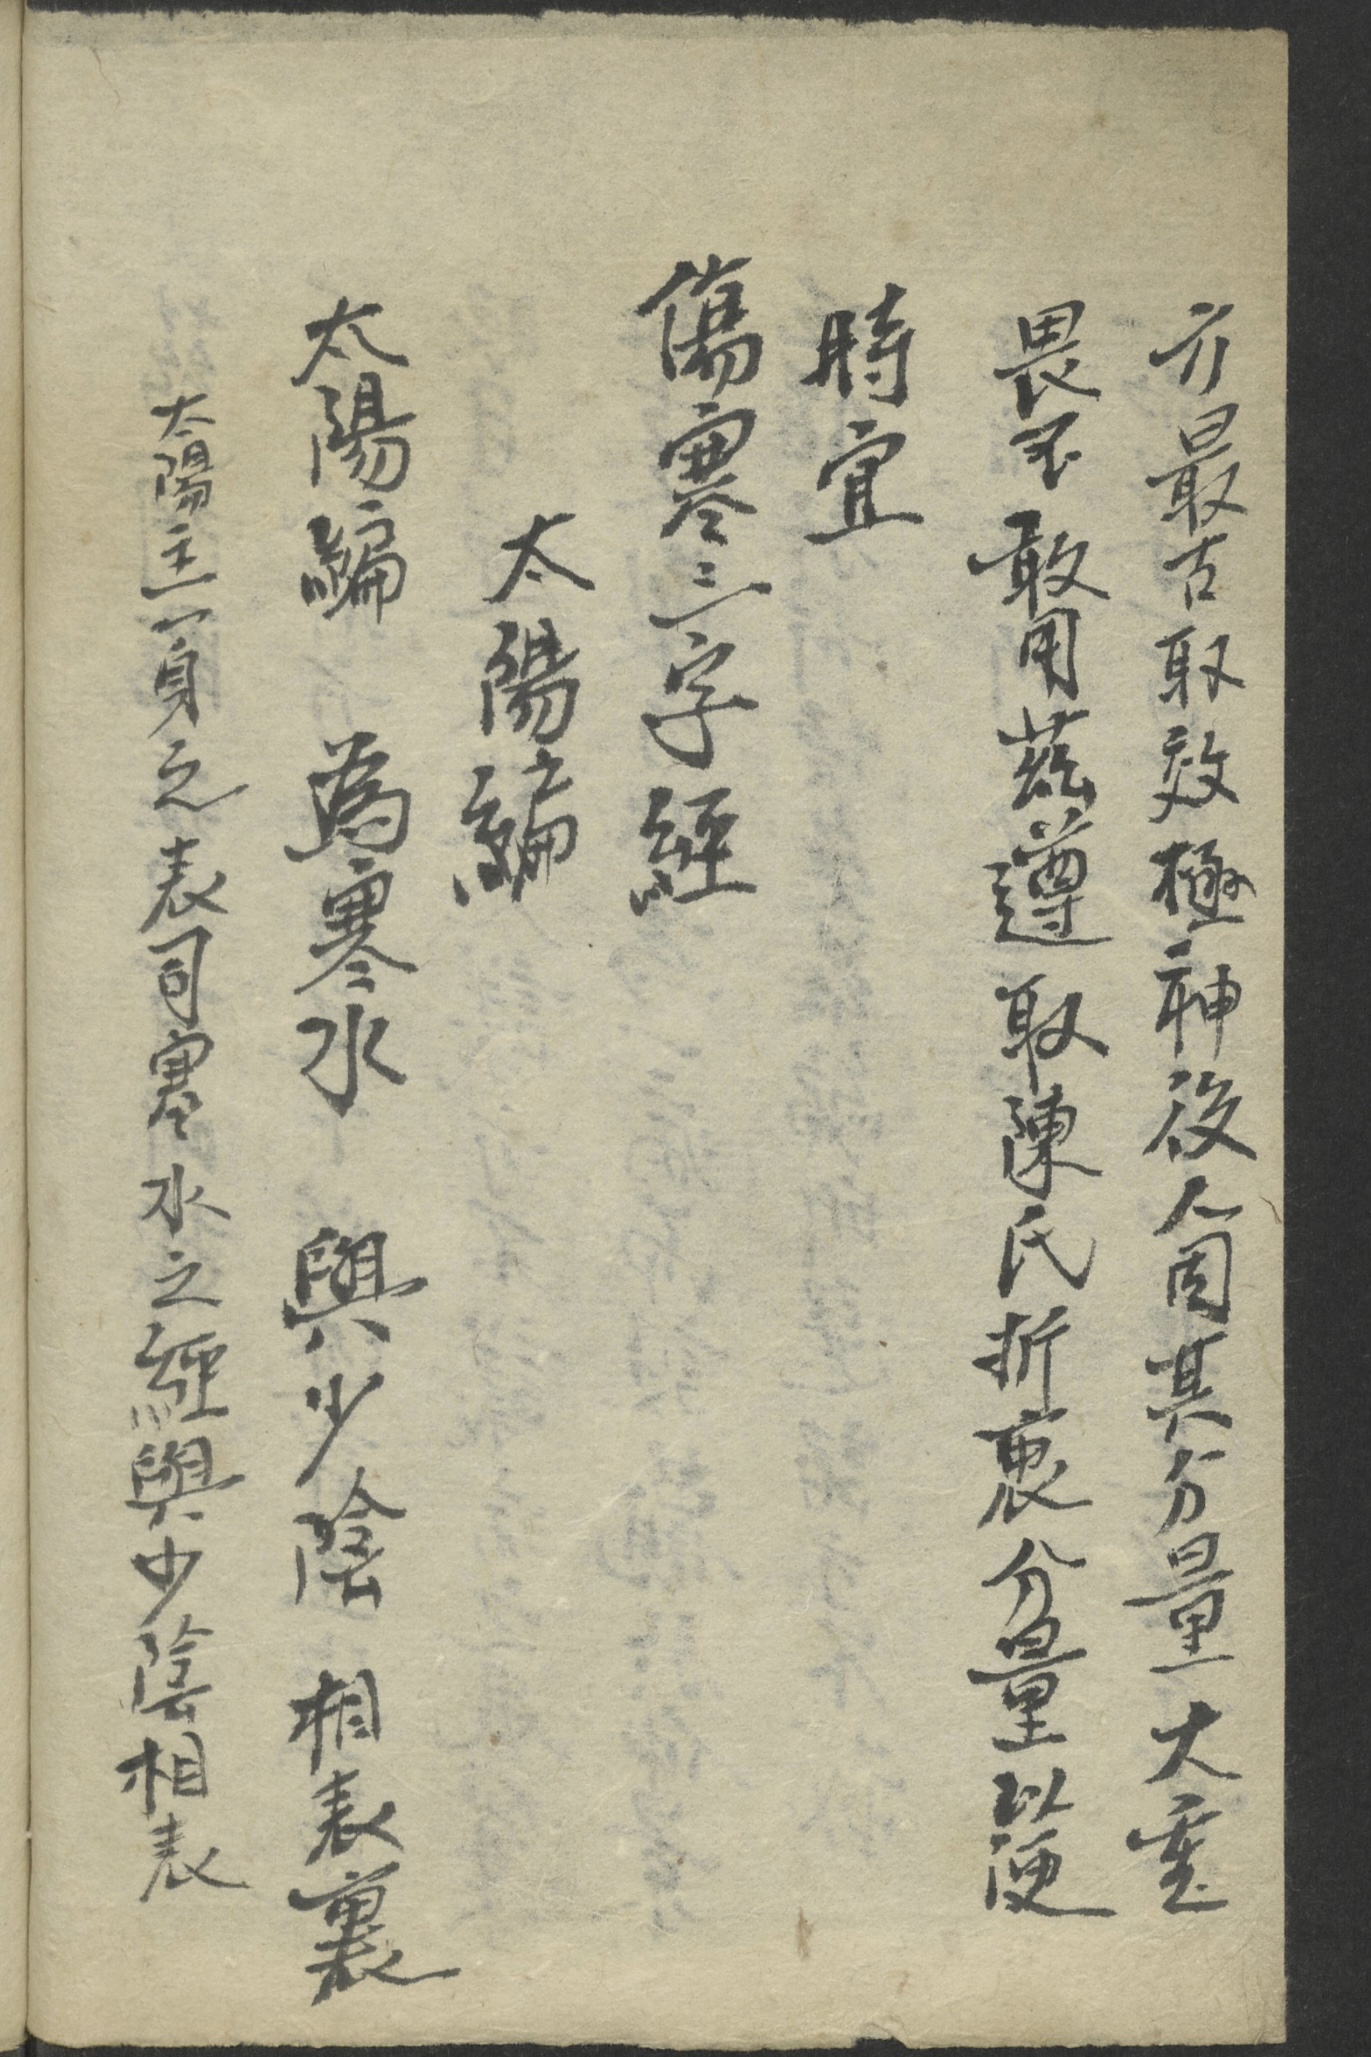 方最古取效極神後人因其分量大重
畏不敢用茲遵取陳氏折衷分量以便
時宜
傷寒三字經
太陽編
太陽編 為寒水 與少陰 相表裏
太陽主一身之表司寒水之經與少陰相表